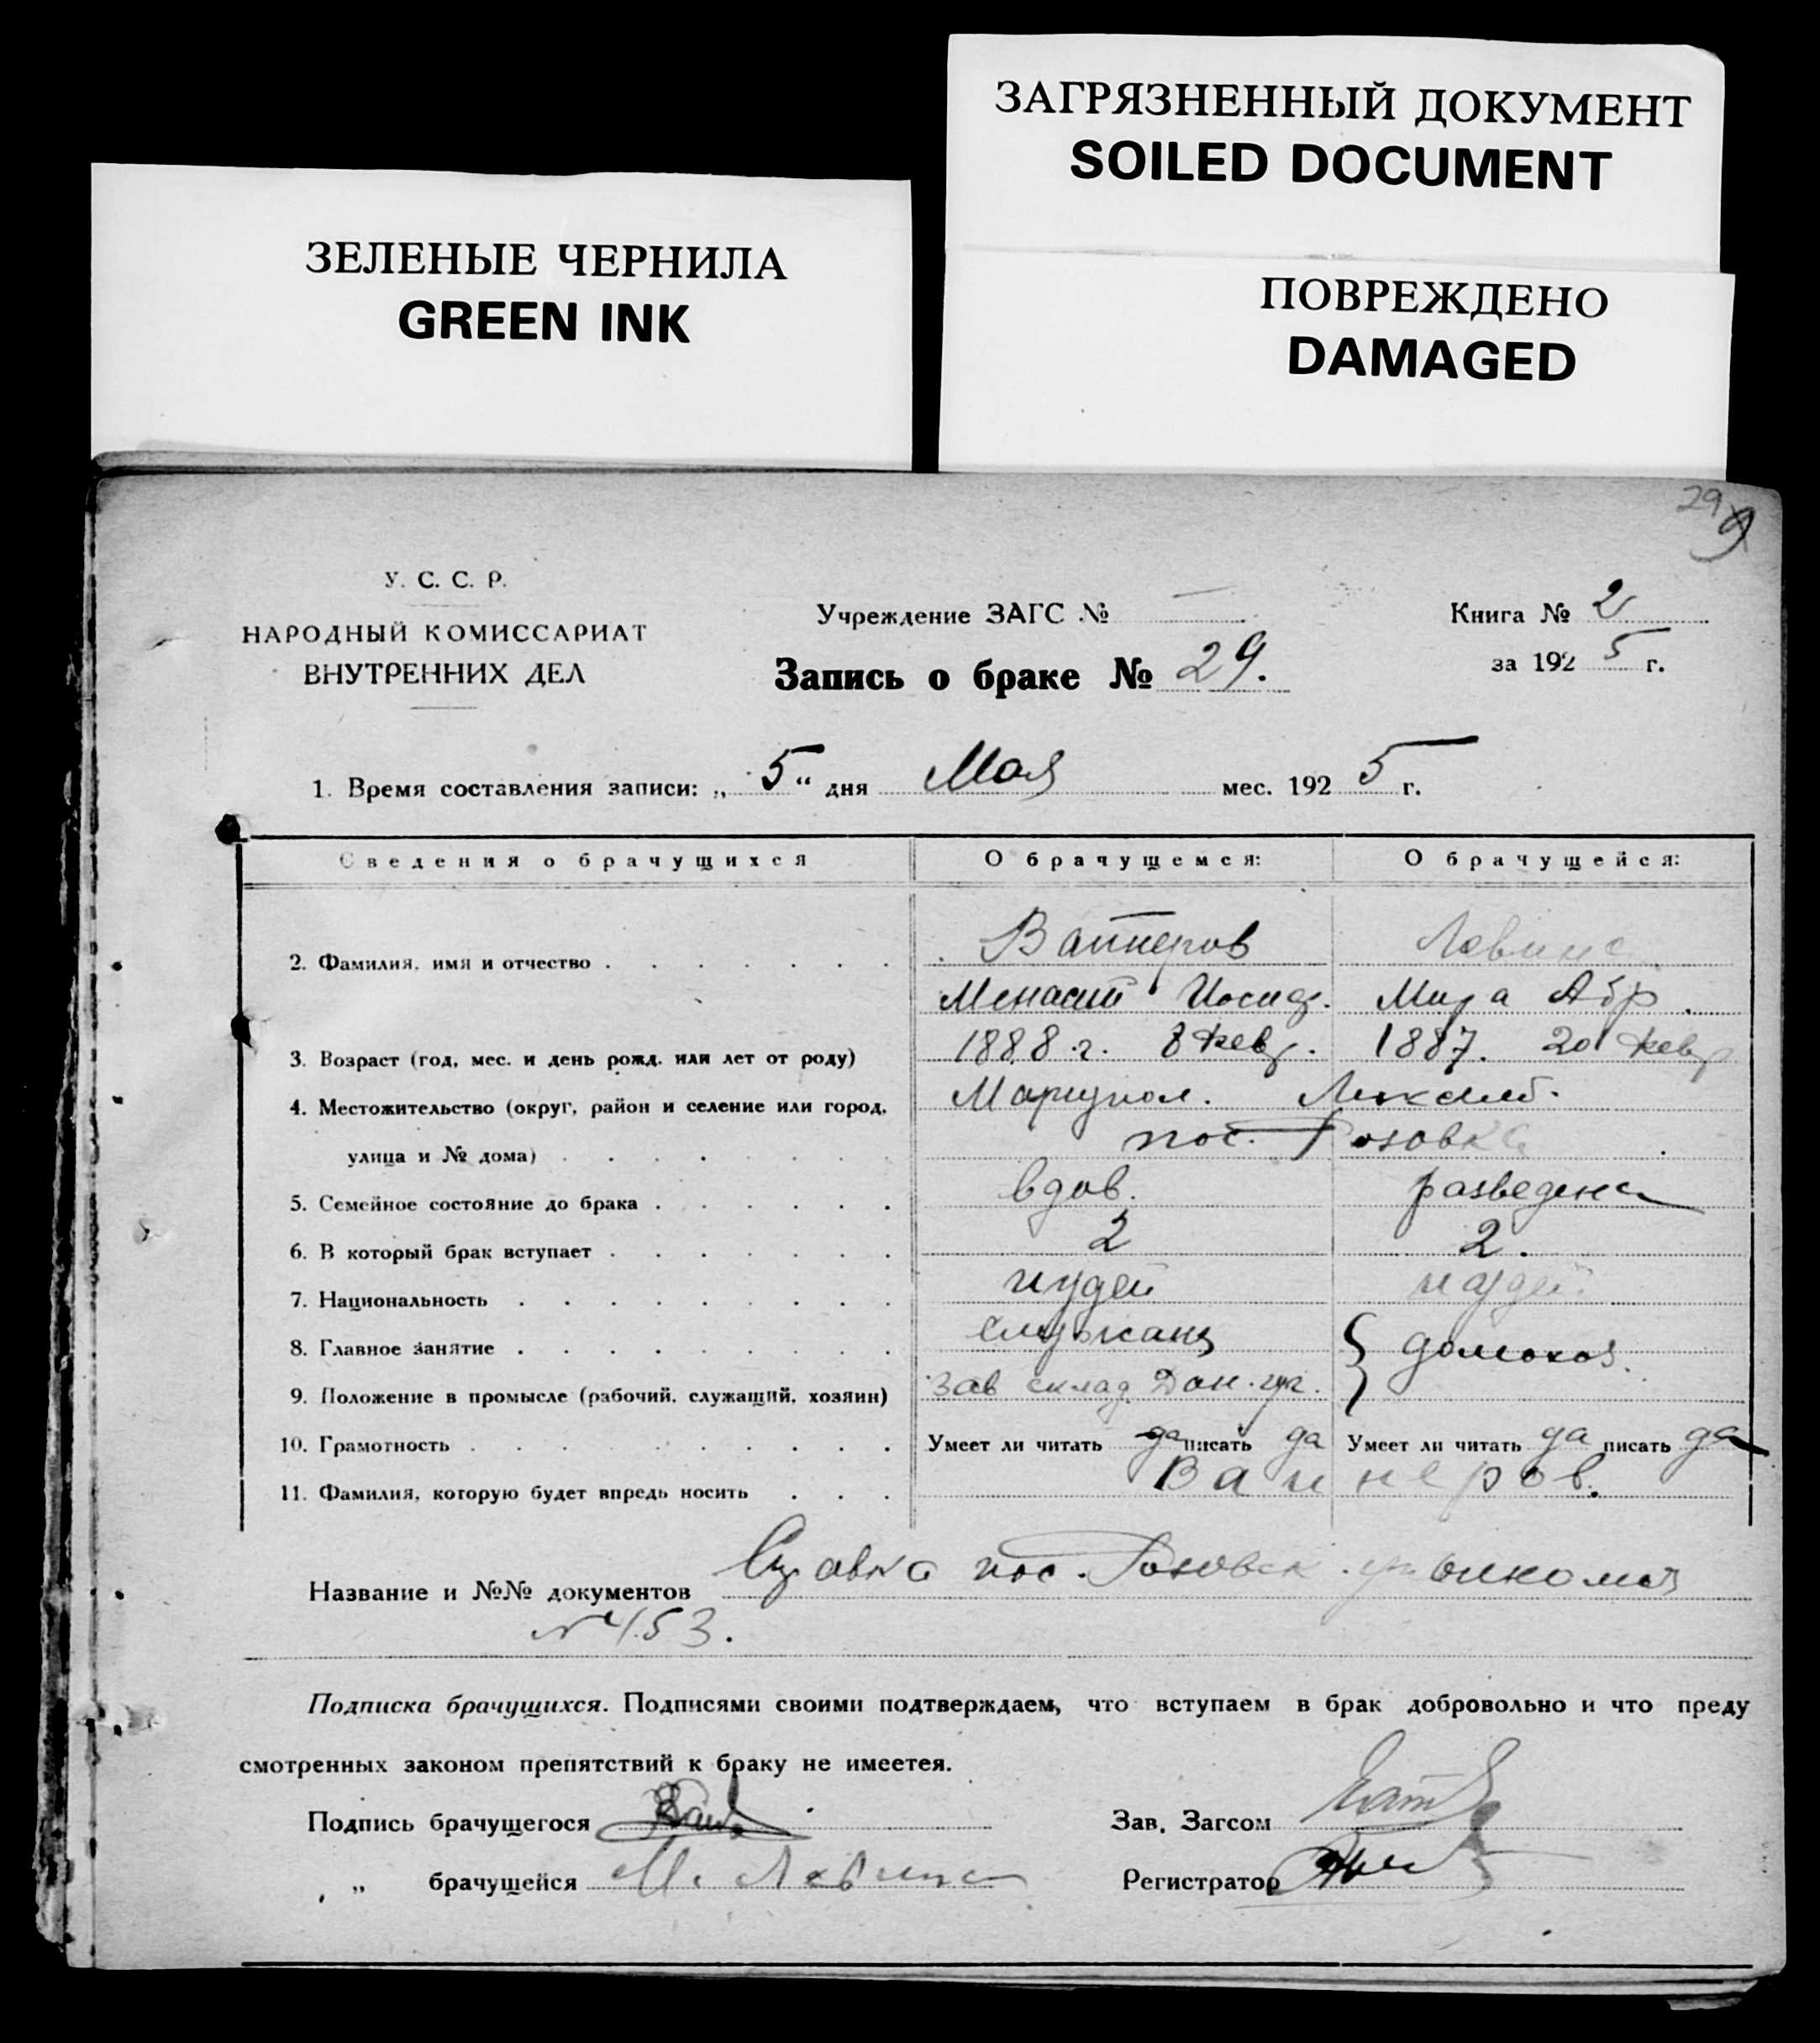 ЗАГРЯЗНЕННЫЙ ДОКУМЕНТ
SOILED DOCUMENT
ЗЕЛЕНЫЕ ЧЕРНИЛА
GREEN INK
ПОВРЕЖДЕНО
DAMAGED
29
У. С. С. Р.
НАРОДНЫЙ КОМИССАРИАТ
ВНУТРЕННИХ ДЕЛ
Учреждение ЗАГС № —
Запись о браке № 29.
Книга № 2
за 1925 г.
1. Время составления записи: „ 5 “ дня Мая мес. 1925 г.
Сведения о брачущихся О брачущемся: О брачущейся:
2. Фамилия, имя и отчество Вайнеров Левина
Менасий Иосиф. Мира Абр.
3. Возраст (год, мес. и день рожд. или лет от роду) 1888 г. 8 февр. 1887. 20 февр
4. Местожительство (округ, район и селение или город, Мариупол.
улица и № дома) пос. Розовка
5. Семейное состояние до брака вдов. разведена
6. В который брак вступает 2 2.
7. Национальность иудей иудей
8. Главное занятие служащ домохоз.
9. Положение в промысле (рабочий, служащий, хозяин) Зав склад Дон.
10. Грамотность Умеет ли читать да писать да Умеет ли читать да писать да
11. Фамилия, которую будет впредь носить Вайнеров.
Название и №№ документов Справка пос. Розовск.
№ 453.
Подписка брачущихся. Подписями своими подтверждаем, что вступаем в брак добровольно и что преду
смотренных законом препятствий к браку не имеетея.
Подпись брачущегося Зав. Загсом
„ брачущейся М. Левина Регистратор